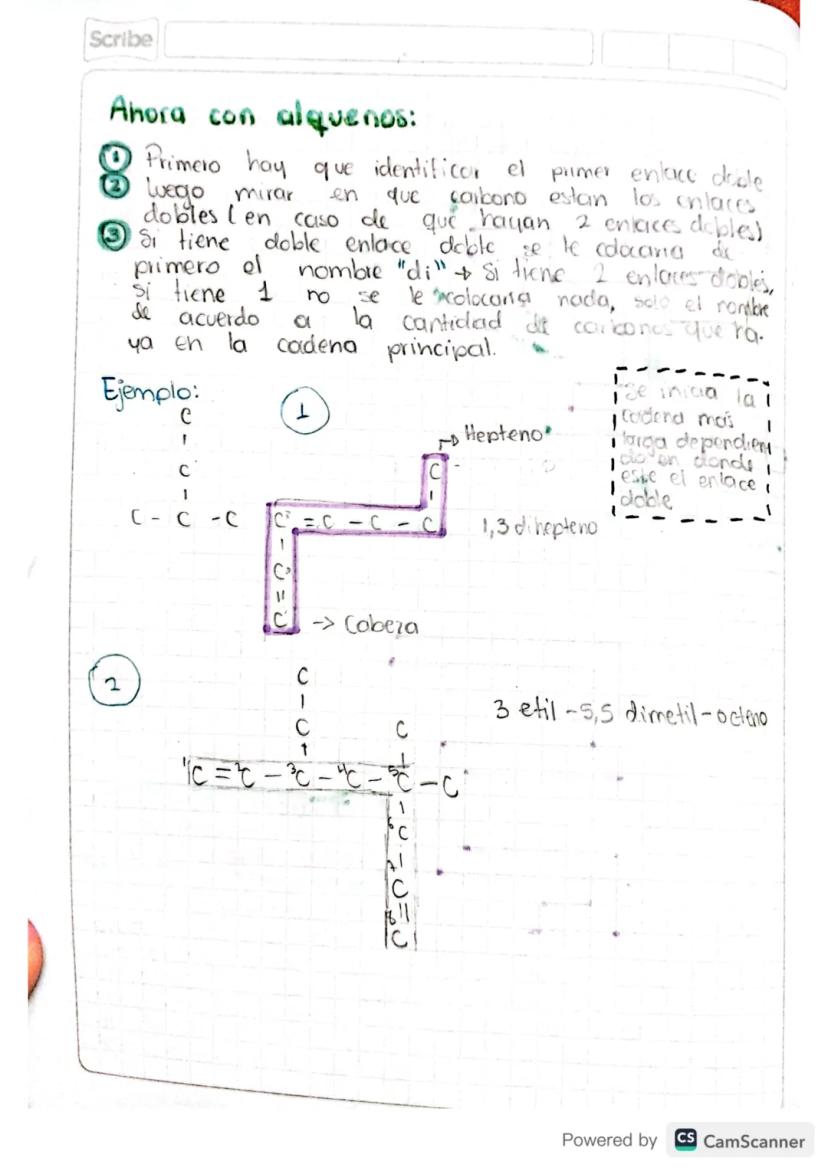 Scribe
Ahora con alquenos:
① Primero hay que identificar el primer enlace doble
② luego mirar en que carbono estan los enlaces
dobles (en caso de que hayan 2 enlaces dobles)
③ Si tiene doble enlace doble se le colocaria de
primero el nombre "di" → Si tiene 2 enlaces dobles,
si tiene 1 no se le colocaria nada, solo el nombre
de acuerdo a la cantidad de carbonos que ha-
ya en la cadena principal.
Ejemplo:
①
Se inicia la
cadena mas
larga dependien
do en donde
este el enlace
doble
C
C
C - C - C
→ Hepteno
C
C = C - C - C
1,3 dihepteno
C
C → Cabeza
②
C
C C
3 etil -5,5 dimetil-octeno
¹C = ²C - ³C - ⁴C - ⁵C - C
6 C
7 C
8 C
Powered by CS CamScanner